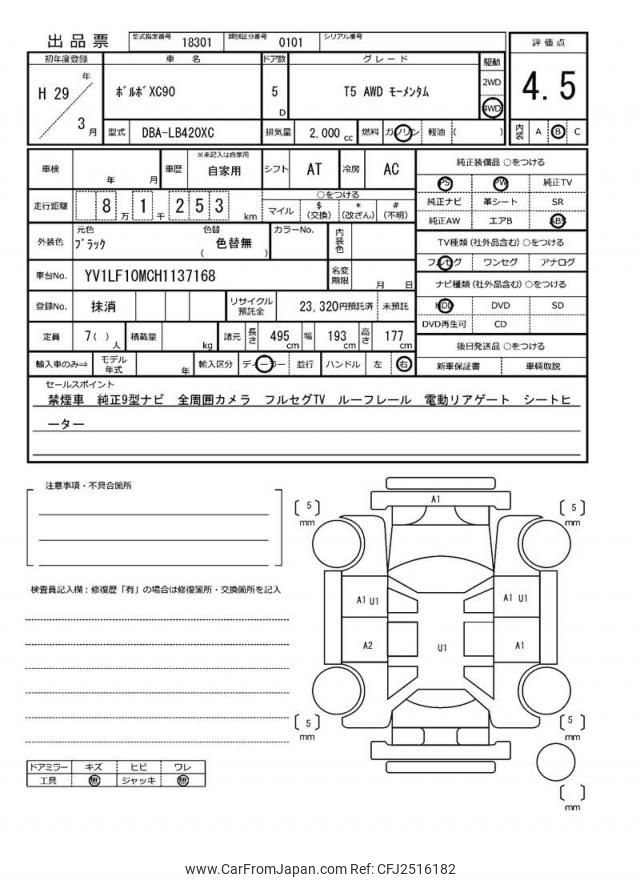 出品票 型式指定番号 18301 類別区分番号 0101 シリアル番号
評価点
4.5
初年度登録 車 名 ドア数 グレード 駆動
H 29 年 3 月
ボルボXC90 5 D T5 AWD モーメンタム 2WD 4WD
型式 DBA-LB420XC 排気量 2,000 cc 燃料 ガソリン 軽油 ( ) 内装 A B C
車検 年 月 車歴 ※未記入は自家用 自家用 シフト AT 冷房 AC
走行距離 8 万 1 千 2 5 3 km ○をつける
マイル $ (交換) * (改ざん) # (不明)
外装色 元色 ブラック 色替 ( 色替無 ) カラーNo. 内装色
車台No. YV1LF10MCH1137168 名変期限 月 日
登録No. 抹消 リサイクル預託金 23,320円預託済 未預託
定員 7( ) 人 積載量 kg 諸元 長さ 495 cm 幅 193 cm 高さ 177 cm
輸入車のみ⇒ モデル年式 年 輸入区分 ディーラー 並行 ハンドル 左 右
純正装備品 ○をつける
PS PW 純正TV
純正ナビ 革シート SR
純正AW エアB ABS
TV種類(社外品含む)○をつける
フルセグ ワンセグ アナログ
ナビ種類(社外品含む)○をつける
HDD DVD SD
DVD再生可 CD
後日発送品 ○をつける
新車保証書 車輌取説
セールスポイント
禁煙車 純正9型ナビ 全周囲カメラ フルセグTV ルーフレール 電動リアゲート シートヒ
ーター
注意事項・不具合箇所
検査員記入欄:修復歴「有」の場合は修復箇所・交換箇所を記入
ドアミラー キズ ヒビ ワレ
工具 無 ジャッキ 無
A1
[ 5 ] mm
[ 5 ] mm
A1 U1
A1 U1
A2
U1
A1
[ 5 ] mm
[ 5 ] mm
[ ] mm
www.CarFromJapan.com Ref: CFJ2516182